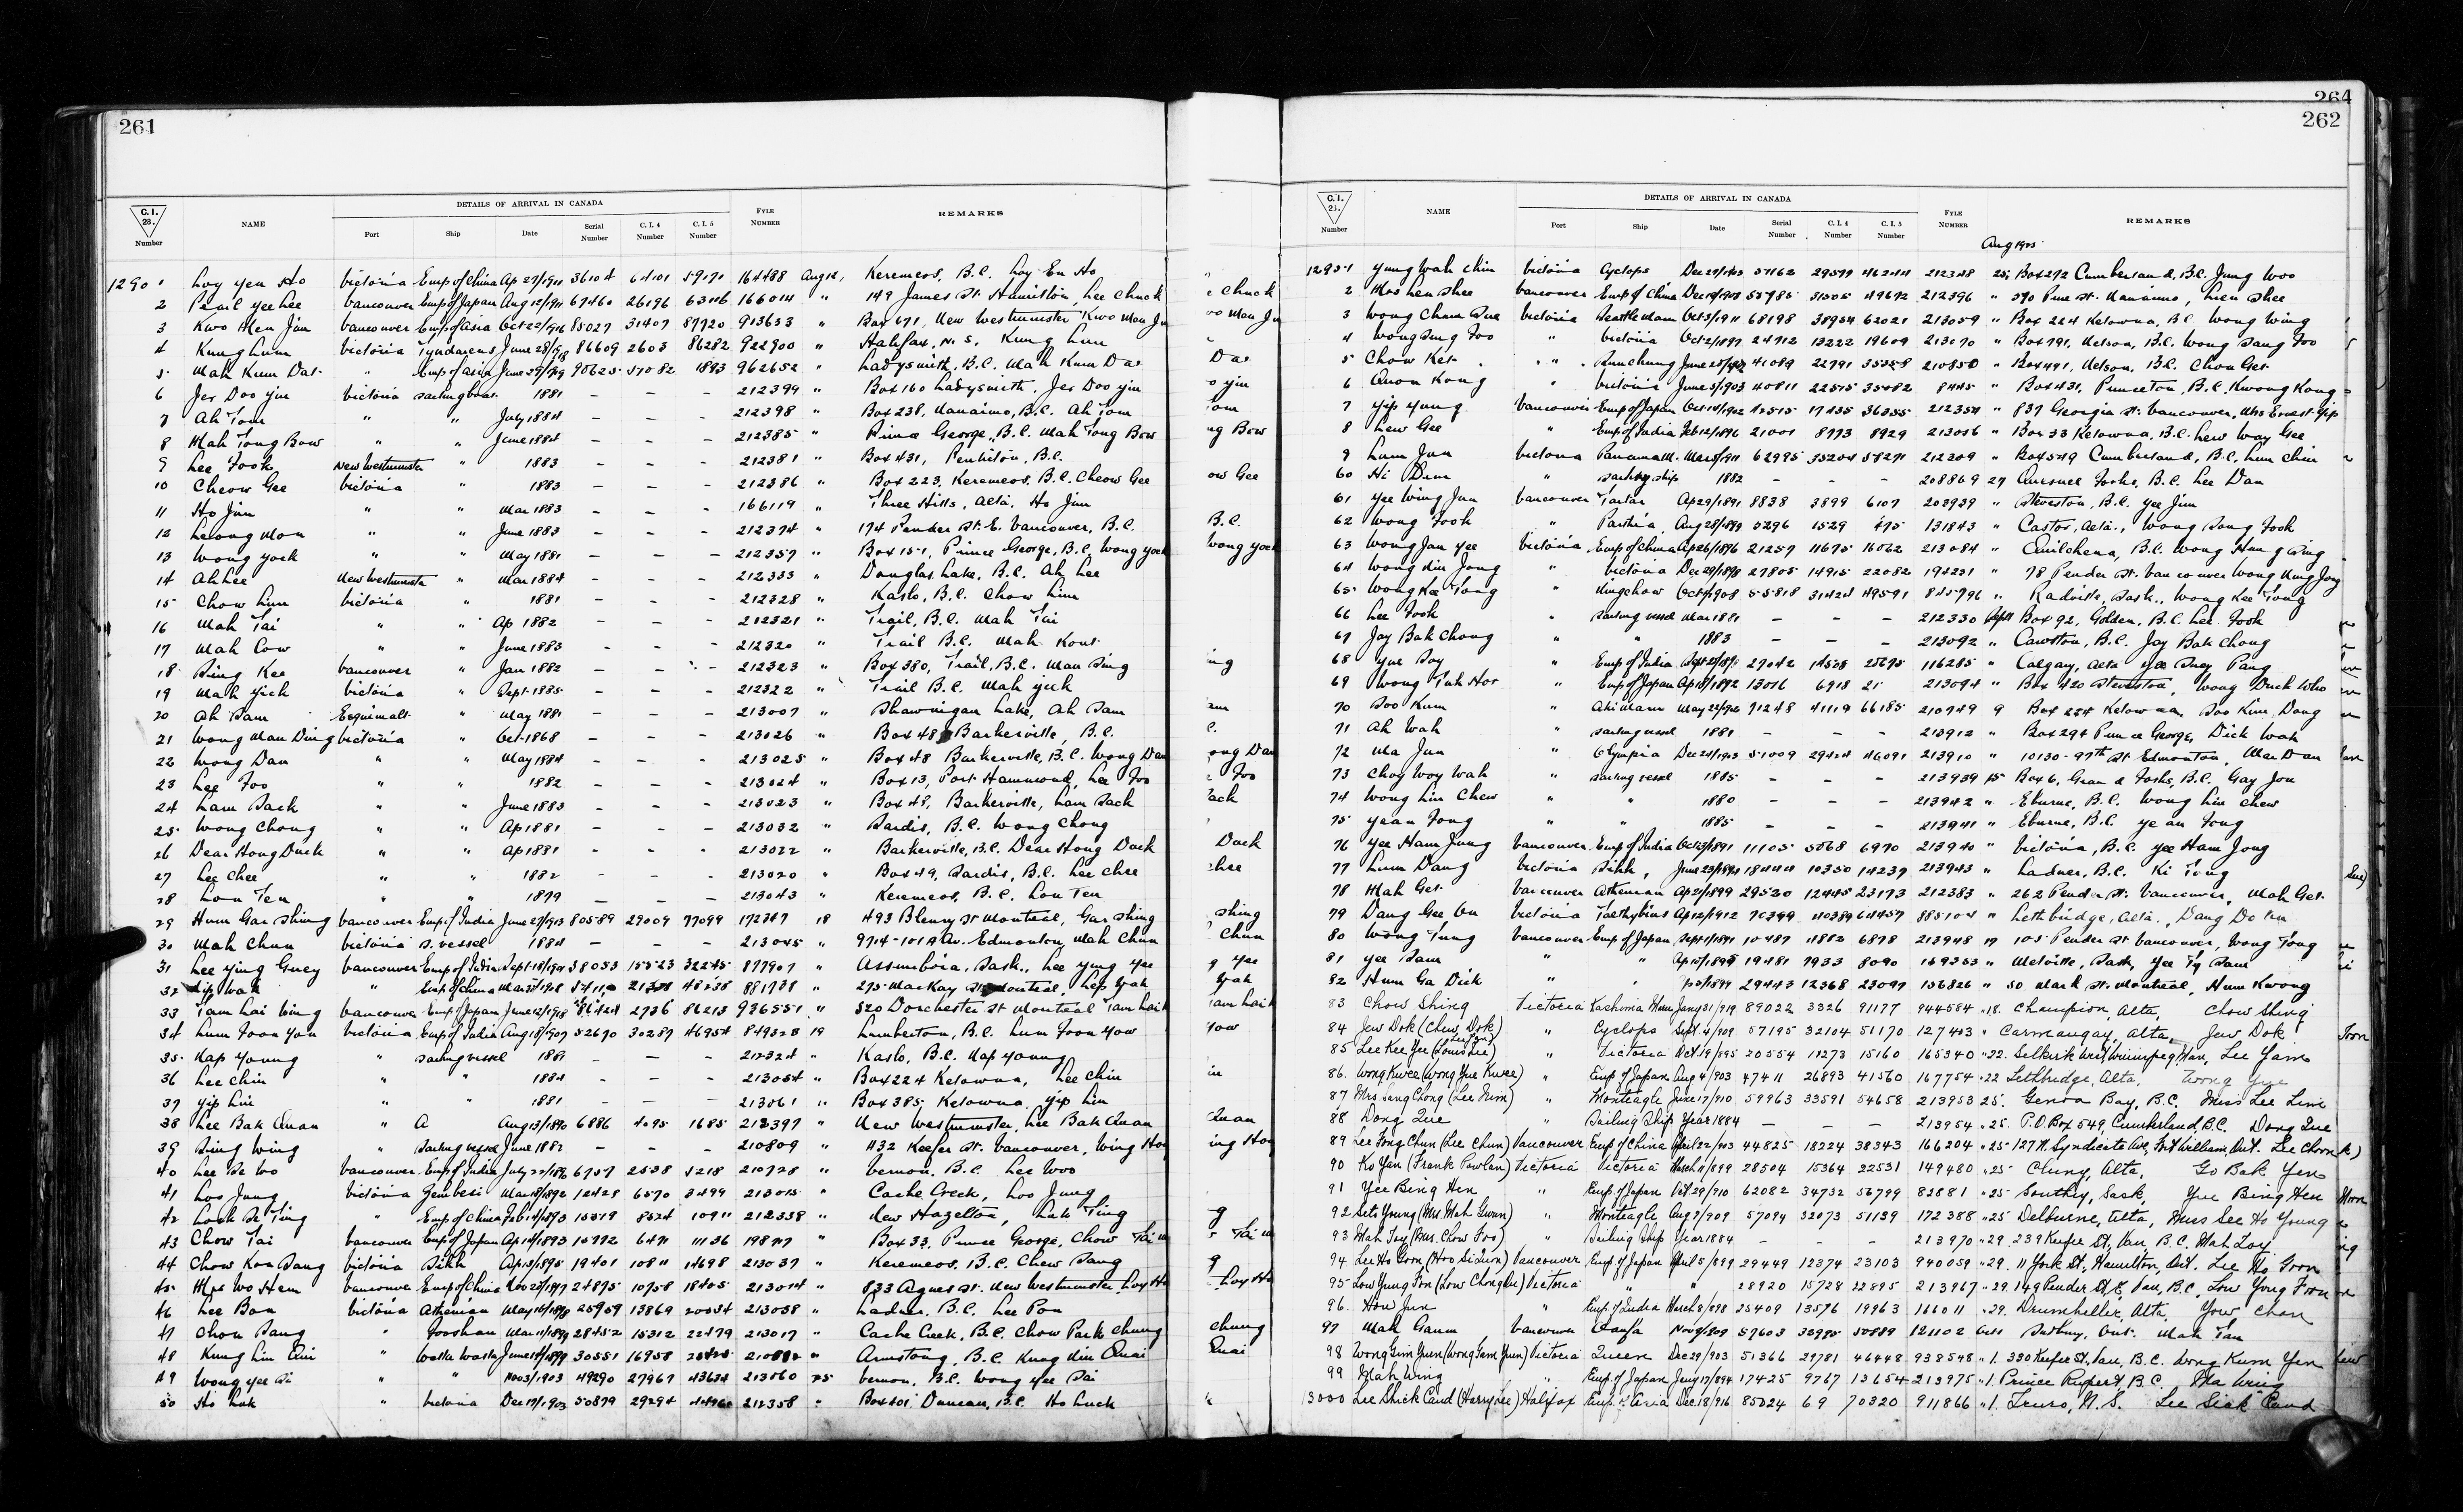 261
C. I. 28. Number NAME DETAILS OF ARRIVAL IN CANADA FYLE NUMBER REMARKS
Port Ship Date Serial Number C. I. 4 Number C. I. 5 Number
12901 Loy Yen Ho Victoria Emp of China Ap 27/1911 36104 64101 59171 164488 Aug 12, Keremeos, B.C. Loy En Ho
2 Pearl Yee Lee Vancouver Emp of Japan Aug 12/1911 67460 26196 63116 166014 " 149 James St. Hamilton, Lee Chuck
3 Kwo Men Jin Vancouver Emp. of Asia Oct 22/916 85027 31407 87720 913633 " Box 671, New Westminster Kwo Mon Ju
4 Kung Lum Victoria Tyndareus June 28/918 86609 2603 86282 922900 " Halifax, N.S. Kung Lum
5 Mah Kum Dat " Emp of Asia June 29/919 90625 57082 1893 962652 " Ladysmith, B.C. Mah Kum Dat
6 Jer Doo Yin Victoria Sailing boat 1881 – – – 212399 " Box 160 Ladysmith, Jer Doo Yin
7 Ah Tom " " July 1884 – – – 212398 " Box 238, Nanaimo, B.C. Ah Tom
8 Mah Tong Bow " " June 1884 – – – 212385 " Prince George, B.C. Mah Tong Bow
9 Lee Fook New Westminster " 1883 – – – 212381 " Box 431, Penticton, B.C.
10 Cheow Gee Victoria " 1883 – – – 212386 " Box 223, Keremeos, B.C. Cheow Gee
11 Ho Jim " " Mar 1883 – – – 166119 " Three Hills, Alta. Ho Jim
12 Leong Mon " " June 1883 – – – 212374 " 174 Pender St. E. Vancouver, B.C.
13 Wong Yock " " May 1881 – – – 212357 " Box 151, Prince George, B.C. Wong Yock
14 Ah Lee New Westminster " Mar 1884 – – – 212333 " Douglas Lake, B.C. Ah Lee
15 Chow Lim Victoria " 1881 – – – 212328 " Kaslo, B.C. Chow Lim
16 Mah Tai " " Ap 1882 – – – 212321 " Trail, B.C. Mah Tai
17 Mah Cow " " June 1883 – – – 212320 " Trail B.C. Mah Kow
18 Sing Kee Vancouver " Jan 1882 – – – 212323 " Box 380, Trail, B.C. Man Sing
19 Mah Yick Victoria " Sept 1885 – – – 212322 " Trail B.C. Mah Yick
20 Ah Sam Esquimalt " May 1881 – – – 213007 " Shawnigan Lake, Ah Sam
21 Wong Man Ding Victoria " Oct 1868 – – – 213026 " Box 48, Barkerville, B.C.
22 Wong Dan " " May 1884 – – – 213025 " Box 48 Barkerville, B.C. Wong Dan
23 Lee Foo " " 1882 – – – 213024 " Box 13, Port Hammond, Lee Foo
24 Lam Sack " " June 1883 – – – 213023 " Box 48, Barkerville, Lam Sack
25 Wong Chong " " Ap 1881 – – – 213032 " Sardis, B.C. Wong Chong
26 Dear Hong Duck " " Ap 1881 – – – 213022 " Barkerville, B.C. Dear Hong Dock
27 Lee Chee " " 1882 – – – 213020 " Box 49, Sardis, B.C. Lee Chee
28 Lou Ten " " 1879 – – – 213043 " Keremeos, B.C. Lou Ten
29 Hum Gar Shing Vancouver Emp. of India June 27/913 80589 29009 77099 172747 18 493 Bleury St Montreal, Gar Shing
30 Mah Chun Victoria S. vessel 1884 – – – 213045 " 9714-101A Av. Edmonton, Mah Chun
31 Lee Ying Guey Vancouver Emp of India Sept 18/1901 38053 15523 32245 877907 " Assiniboia, Sask., Lee Ying Yee
32 Lip Wah " Emp of China 881738 " 275 MacKay St Montreal, Lep Wah
33 Tam Hai Wing Vancouver Emp of Japan June 12/1918 2736 86213 936551 " 520 Dorchester St Montreal Tam Hai
34 Lum Foon Yon Victoria Emp of India Aug 18/907 52670 30287 46954 849328 19 Lumberton, B.C. Lum Foon Yow
35 Kap Young " Sailing vessel 1881 – – – 212324 " Kaslo, B.C. Kap Young
36 Lee Chin " " 1884 – – – 213054 " Box 224 Kelowna, Lee Chin
37 Yip Lin " " 1881 – – – 213061 " Box 385 Kelowna Yip Lin
38 Lee Bak Quan " A Aug 13/1890 6886 4095 1685 212397 " New Westminster, Lee Bak Quan
39 Sing Wing " Sailing vessel June 1882 – – – 210809 " 432 Keefer St. Vancouver, Wing Hoy
40 Lee Se Wo Vancouver Emp. of India July 22/1891 6757 2538 5218 210728 " Vernon, B.C. Lee Woo
41 Loo Jung Victoria Zembesi Mar 18/1892 12429 6570 3499 213015 " Cache Creek, Loo Jung
42 Look Se Ting " Emp of China Feb 14/1893 15519 8524 10911 212338 " New Hazelton, Luk Ting
43 Chow Tai Vancouver Emp of Japan Ap 18/1893 10792 6471 11136 198717 " Box 33, Prince George, Chow Tai
44 Chow Koo Sang Victoria Sikh Ap 13/1895 19401 10811 14698 213037 " Keremeos, B.C. Chew Sang
45 Mrs Wo Hem Vancouver Emp of China Nov 23/1897 24895 10758 18405 213014 " 833 Agnes St. New Westminster Loy Ho
46 Lee Bon Victoria Athenian May 16/1898 25959 13869 20034 213038 " Ladner, B.C. Lee Pon
47 Chou Sang " Fooshan Mar 11/1899 28452 15312 22479 213017 " Cache Creek, B.C. Chow Park Chung
48 Kung Lin Qui " Walla Walla June 14/1899 30551 16958 " Armstrong, B.C. Kung Lin Quai
49 Wong Yee Si " " Nov 3/1903 49290 27967 43634 213060 25 Vernon, B.C. Wong Yee Sai
50 Ho Luk " Victoria Dec 17/1903 50879 29294 212358 " Box 401 Duncan, B.C. Ho Luck
264
262
C. I. 28. Number NAME DETAILS OF ARRIVAL IN CANADA FYLE NUMBER REMARKS
Port Ship Date Serial Number C. I. 4 Number C. I. 5 Number
Aug 1923
12951 Yung Wah Chin Victoria Cyclops Dec 29/1903 51162 29579 46244 212348 25, Box 272 Cumberland, B.C. Jung Woo
2 Mrs Len Shee Vancouver Emp of China Dec 19/1908 55785 31505 49692 212396 " 590 Pine St. Nanaimo, Lien Shee
3 Wong Cham Sue Victoria Seattle Maru Oct 3/1911 68198 38954 62021 213059 " Box 224 Kelowna, B.C. Wong Wing
4 Wong Sang Foo " Victoria Oct 2/1897 24712 13222 19609 213070 " Box 791, Nelson, B.C. Wong Sang Foo
5 Chow Ket " 41089 22791 35358 210850 " Box 491, Nelson, B.C. Chou Get
6 Quon Kong " Victoria June 5/1903 40811 22575 35082 8445 " Box 431, Princeton, B.C. Kwong Kong
7 Yip Yung Vancouver Emp of Japan Oct 14/1902 42515 17435 36355 212354 " 837 Georgia St. Vancouver, Mrs Ernest Yip
8 Lew Gee " Emp of India Feb 12/1896 21001 8773 8929 213056 " Box 33 Kelowna, B.C. Lew Way Gee
9 Lum Jun Victoria Panama M. Mar 5/1911 62995 35204 57271 212309 " Box 549 Cumberland, B.C. Lum Chin
60 Hi Dun " Sailing ship 1882 – – – 208869 27 Quesnel Forks, B.C. Lee Dan
61 Yee Wing Jun Vancouver Tartar Ap 29/1891 8838 3899 6107 203939 " Steveston, B.C. Yee Jim
62 Wong Fook " Parthia Aug 28/1889 5296 1529 475 131843 " Castor, Alta., Wong Sang Fook
63 Wong Jan Yee Victoria Emp of China Ap 26/1896 21257 11675 16062 213084 " Quilchena, B.C. Wong Hung Wing
64 Wong Kin Jong " Victoria Dec 29/1898 27805 14915 22082 194231 " 78 Pender St. Vancouver Wong King Jong
65 Wong Kee Tong " Ningchow Oct 9/1908 55818 31424 49591 845796 " Kadville, Sask., Wong Kee Tong
66 Lee Fook " Sailing vessel Mar 1881 – – – 212330 Sept 1 Box 92, Golden, B.C. Lee Fook
67 Jay Bak Chong " " 1883 – – – 213092 " Cawston, B.C. Jay Bak Chong
68 Yue Soy " Emp. of India Sept 21/1898 27042 14508 20695 116285 " Calgary, Alta Yee Suey Pang
69 Wong Tuk Hor " Emp. of Japan Ap 18/1892 13016 6918 21 213094 " Box 420 Steveston, Wong Duck Who
70 Soo Kum " Aki Maru May 22/912 71248 41119 66185 210749 9 Box 224 Kelowna, Soo Kim Dong
71 Ah Wah " Sailing vessel 1881 – – – 213912 " Box 294 Prince George, Dick Wah
72 Ma Jun " Olympia Dec 24/1903 51009 29424 46091 213910 " 10130-97th St Edmonton, Mar Dan
73 Choy Woy Wah " Sailing vessel 1885 – – – 213939 15 Box 6, Grand Forks, B.C. Gay Jon
74 Wong Lin Chew " " 1880 – – – 213942 " Eburne, B.C. Wong Lin Chew
75 Yean Fong " " 1885 – – – 213941 " Eburne, B.C. Ye an Fong
76 Yee Ham Jung Vancouver Emp of India Oct 13/1891 11105 5068 6970 213940 " Victoria, B.C. Yee Ham Jong
77 Lum Dang Victoria Sikh, June 23/1894 18444 10350 14239 213943 " Ladner, B.C. Ki Tong
78 Mah Get Vancouver Athenian Ap 21/1899 29520 12445 23173 212383 " 262 Pender St. Vancouver, Mah Get
79 Dang Gee Un Victoria Talthybius Ap 12/1912 70399 40389 64457 885104 " Lethbridge, Alta., Dang Do Un
80 Wong Tung Vancouver Emp of Japan Sept 1/1891 10487 11882 6878 213948 17 105 Pender St Vancouver, Wong Tong
81 Yee Sam " " Ap 15/1895 19481 7933 8090 169253 " Melville, Sask, Yee Ty Sam
82 Hum Ga Dick " " 29443 12368 23097 156326 " 50 Clark St. Montreal, Hum Kwong
83 Chow Shing Victoria Kashima Maru Jany 31/919 89022 3326 91177 944584 "18. Champion, Alta, Chow Shing
84 Jew Dok (Chew Dok) " Cyclops Sept. 4/909 57195 32104 51170 127403 " Carmangay, Alta, Jew Dok
85 Lee Kee Yee (Louis Lee) " Victoria Oct. 19/895 20554 11273 15160 165340 "22. Selkirk Ave, Winnipeg, Man, Lee Yam
86. Wong Kwee (Wong Yue Kwee) " Emp. of Japan Aug 4/903 47411 26893 41560 167754 "22 Lethbridge, Alta, Wong Yue
87 Mrs Sang Chong (Lee Nim) " Monteagle June 17/910 59963 33591 54658 213953 25. Genoa Bay, B.C. Miss Lee Lim
88 Dong Que " Sailing Ship Year 1884 – – – 213954 "25. P.O. Box 549, Cumberland, B.C. Dong Que
89 Lee Fong Chun (Lee Chun) Vancouver Emp of China April 22/903 44825 18224 38343 166204 "25 127 N. Syndicate Ave, Fort William Ont. Lee Chong
90 Ko Yan (Frank Powlan) Victoria Victoria March 11/899 28504 15364 22531 149480 "25 Cluny, Alta, Go Bak Yen
91 Yee Bing Hen " Emp. of Japan Oct. 29/910 62082 34732 56799 82881 "25 Southey, Sask, Yue Bing Hen
92 Seto Young (Mrs. Mah Gwan) " Monteagle Aug 7/909 57094 32073 51139 172388 "25 Delburne, Alta, Miss See Ho Young
93 Mah Toy (Mrs. Chow Foo) " Sailing Ship Year 1884 – – – 213970 "29. 239 Keefer St, Van, B.C. Mah Loy
94 Lee Ho Goon (Hoo Si Quon) Vancouver Emp. of Japan April 5/899 29449 12374 23103 940059 "29. 11 York St, Hamilton, Ont. Lee Ho Goon
95 Low Yung Fon (Low Chong Lee) Victoria " 28920 15728 22895 213967 "29. 149 Pender St, E, Van, B.C. Low Yong Foon
96. How Jun " Emp. of India March 8/898 25409 13576 19963 166011 "29. Drumheller, Alta, Yow Chon
97 Mah Gaum Vancouver Oanfa Nov 9/909 57603 32975 50889 121102 Oct 1 Sudbury, Ont. Mah Tan
98 Wong Gim Yuen (Wong Gam Yuen) Victoria Queen Dec 29/903 51366 29781 46448 938548 " 1. 330 Keefer St, Van, B.C. Wong Kum Yen
99 Mah Wing " Emp. of Japan Jany 17/894 17425 9767 13654 213975 " 1. Prince Rupert, B.C. Ma Wing
13000 Lee Shick Cand (Harry Lee) Halifax Emp. of Asia Dec. 18/916 85024 69 70320 911866 " 1. Truro, N.S. Lee Siak Cand